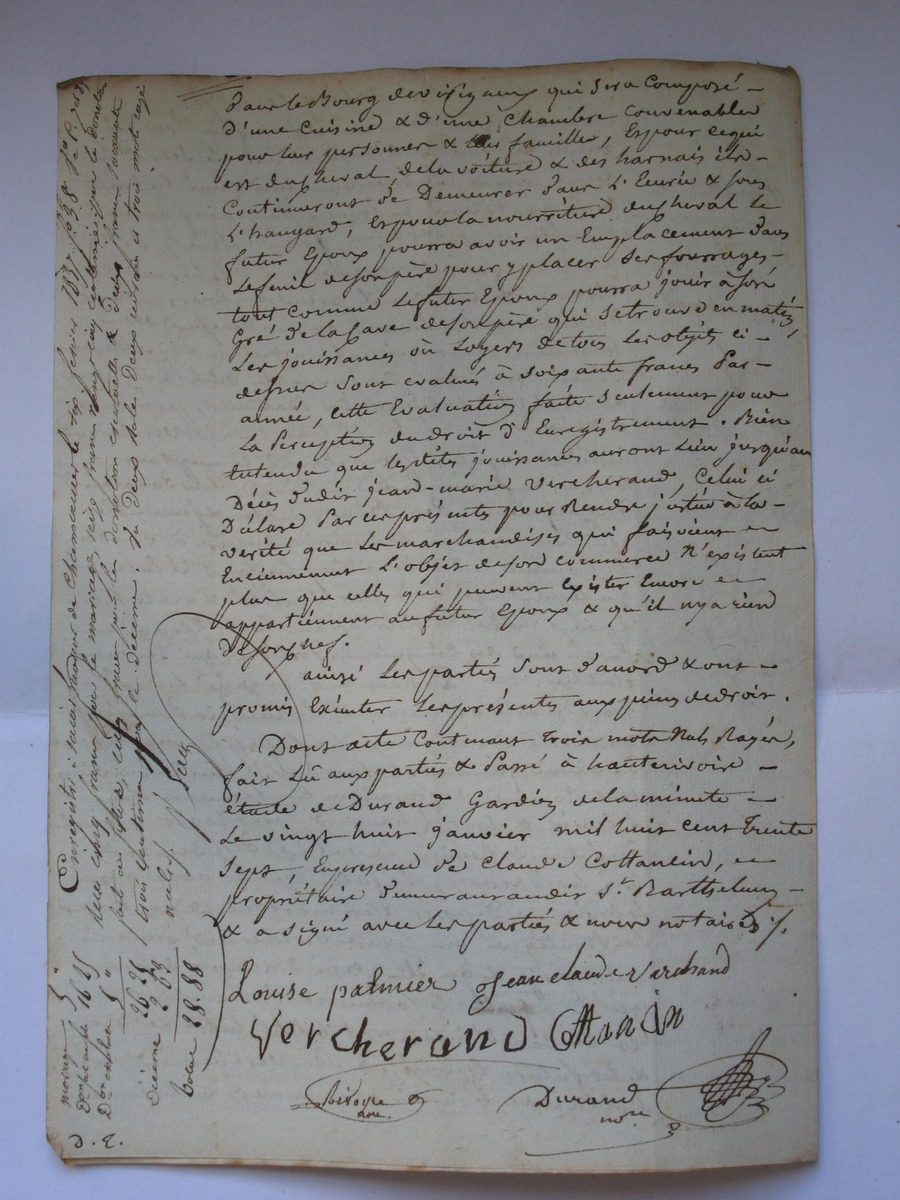 Dans le Bourg de qui sera Composé
d'une cuisine & d'une chambre convenable
pour leur personnes & familles, Et pour ce qui
est du cheval, de la voiture & des harnais ils
Continueront de Demeurer Dans L'Ecurie & sous
L'hangard, Et pour la nourriture du cheval le
futur Epoux pourra avoir un Emplacement dans
Le fenil de son père pour y placer ses fourrages
tout comme Le futur Epoux pourra jouir à son
Gré de la Cave de son père qui se trouve en
Les jouissances où Loyers de tous Les objets ci
dessus Sont evalués à soixante francs Par
année, cette Evaluation faite seulement pour
La Perception du droit d'Enregistrement. Bien
Entendu que les dites jouissances auront Lieu jusqu'au
Décès dudit jean-marie Vercherand, Celui ci
Déclare Par ces présentes pour Rendre justice à la
verité que Les marchandises qui faisoient
Enciennement L'objet de son commerce N'existent
plus que celles qui peuvent Exister Encore
appartiennent au futur Epoux & qu'il n'y a rien
De son chef.
ainsi Les parties sont d'accord & ont
promis Exécuter Les présentes aux peines de droit.
Dont acte Contenant Trois mots Nuls Rayés,
fait Lû aux parties & Passé à hauterivoire
étude de Durand Gardien de la minute
Le vingt huit janvier mil huit cent Trente
Sept, En présence de Claude Cottancin,
propriétaire demeurant audit St. Barthelemy
& a signé avec Les parties & nous notaires
Louise palmier Jean claude Verchrand
Vercherand Cottancin
Durand
nore
Enregistré à saint de Chamond le six février 1837 fo 38
Reçu cinq francs pour le mariage, seize francs vingt cinq centimes pour la donation
fait au futur, cinq francs pour la donation eventuelle & Deux francs soixante
trois centimes pour le décime.
mariage 5
Don 16 25
Don 5 "
26 25
Décime 2 63
Total 28.88
D. E.